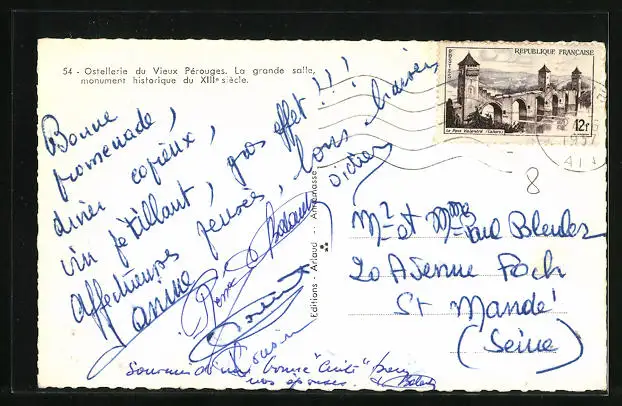 54 - Ostellerie du Vieux Pérouges. La grande salle,
monument historique du XIIIe siècle.
REPUBLIQUE FRANÇAISE
POSTES
Le Pont Valentré (Cahors)
12f
Bonne
promenade,
diner copieux,
vin pétillant, gros effet !!!
Affectueuses pensées, bons baisers
Didier
Editions - Arlaud -
8
Mr et Mme Paul
20 Avenue Foch
St Mandé
(Seine)
Souvenir bonne
nos épouses.